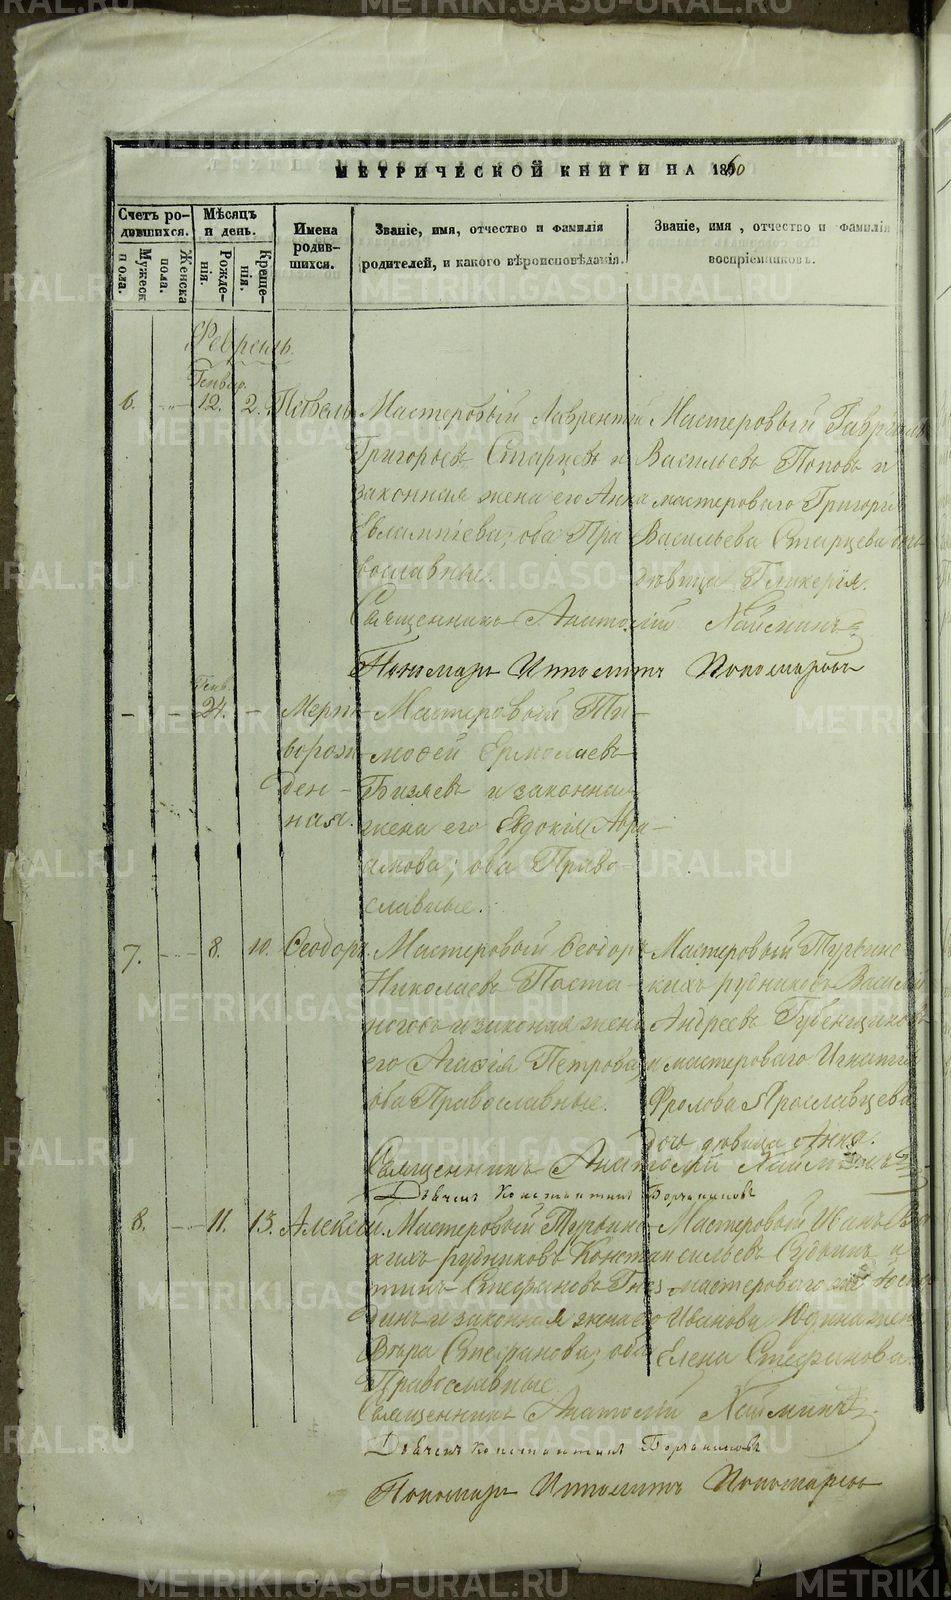 МЕТРИЧЕСКОЙ КНИГИ НА 1860
Счетъ родившихся.
Мужеска пола.
Женска пола.
Мѣсяцъ и день.
Рожденія.
Крещенія.
Имена родившихся.
Званіе, имя, отчество и фамилія
родителей, и какого вѣроисповѣданія.
Званіе, имя, отчество и фамилія
воспріемниковъ.
Февраль.
Генвар.
6. 12. 2. Павелъ
Мастеровый Лаврентій
Григорьевъ Старцевъ и
законная жена его Анна
Евлампіева; оба Пра
вославные.
Мастеровый Гавріилъ
Васильевъ Поповъ и
мастероваго Григорія
Васильева Старцева
дѣвица Гликерія.
Священникъ Анатолій
Пономарь Ипполитъ Пономаревъ
Генв.
24.
Мерт
ворож
ден-
ная.
Мастеровый Ти-
моѳей Ермолаевъ
Бизяевъ и законная
жена его Евдокія Авра-
амова; оба Право-
славные.
7. 8. 10. Ѳеодоръ
Мастеровый Ѳеодоръ
Николаевъ Поста-
ноговъ и законая жена
его Агафія Петрова,
оба Православные.
Мастеровый Турьинс
кихъ рудниковъ Василій
Андреевъ Губенщиковъ
и мастероваго Игнатія
Фролова Ярославцева
дочь дѣвица Анна.
Священникъ Анатолій
Дьячекъ Константинъ
8. 11. 13. Алексѣй.
Мастеровый Турьинс
кихъ рудниковъ Констан
тинъ Стефановъ
и законная жена его
Вѣра Стефанова; оба
Православные
Мастеровый Иванъ Ва
сильевъ и
мастероваго
Иванова Юдина жена
Елена Стефанова.
Священникъ Анатолій
Дьячекъ Константинъ
Пономарь Ипполитъ Пономаревъ
METRIKI.GASO-URAL.RU